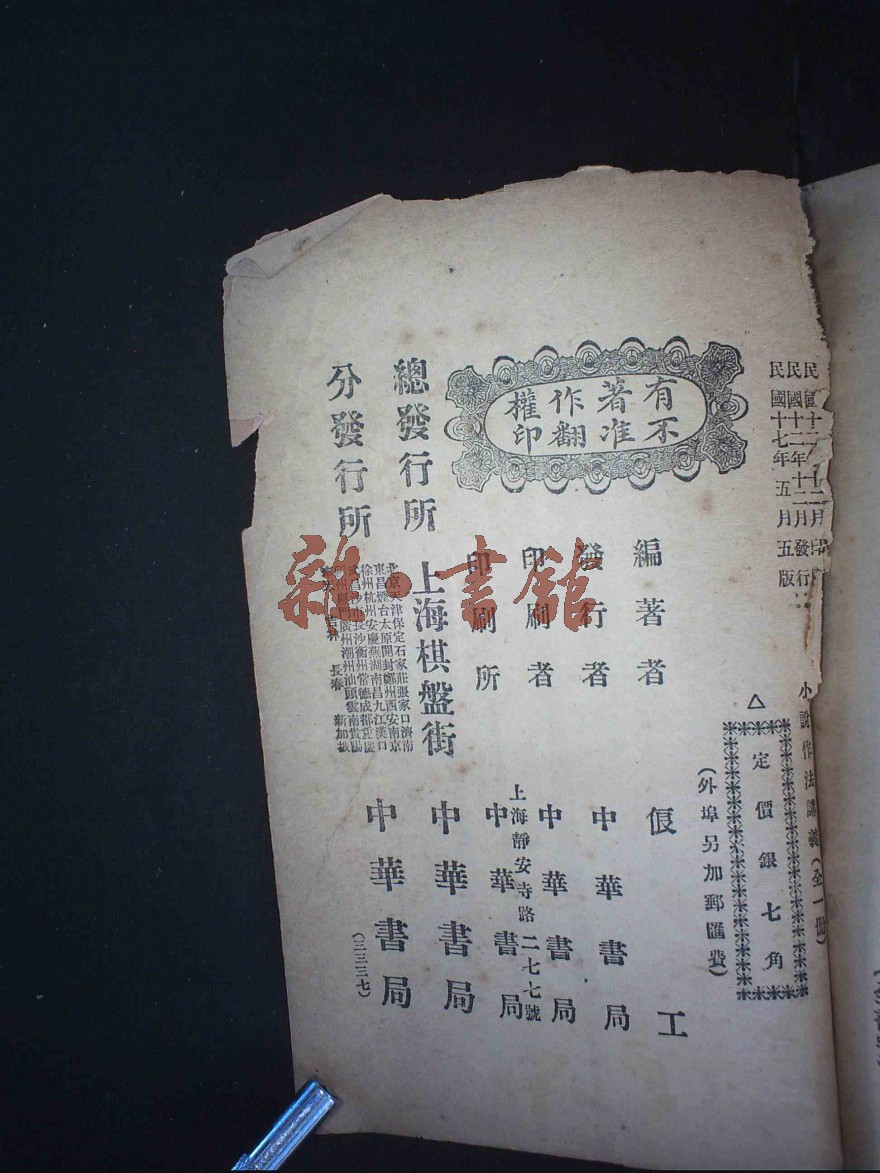 民國十二年十二月印刷
民國十二年十二月發行
民國十七年五月五版
小說作法講義（全一冊）
△定價銀七角
（外埠另加郵匯費）
有著作權
不准翻印
編著者 㑇工
發行者 中華書局
印刷者 中華書局
上海靜安寺路二七七號
印刷所 中華書局
總發行所 上海棋盤街 中華書局
分發行所
北京天津保定石家莊張家口濟南
東昌煙台太原開封鄭州西安南京
徐州杭州安慶蕪湖南昌九江漢口
沙市長沙衡州常德成都重慶
廈門廣州潮州汕頭雲南貴陽
吉林 長春 新加坡
中華書局
（三三三七）
雜·書館